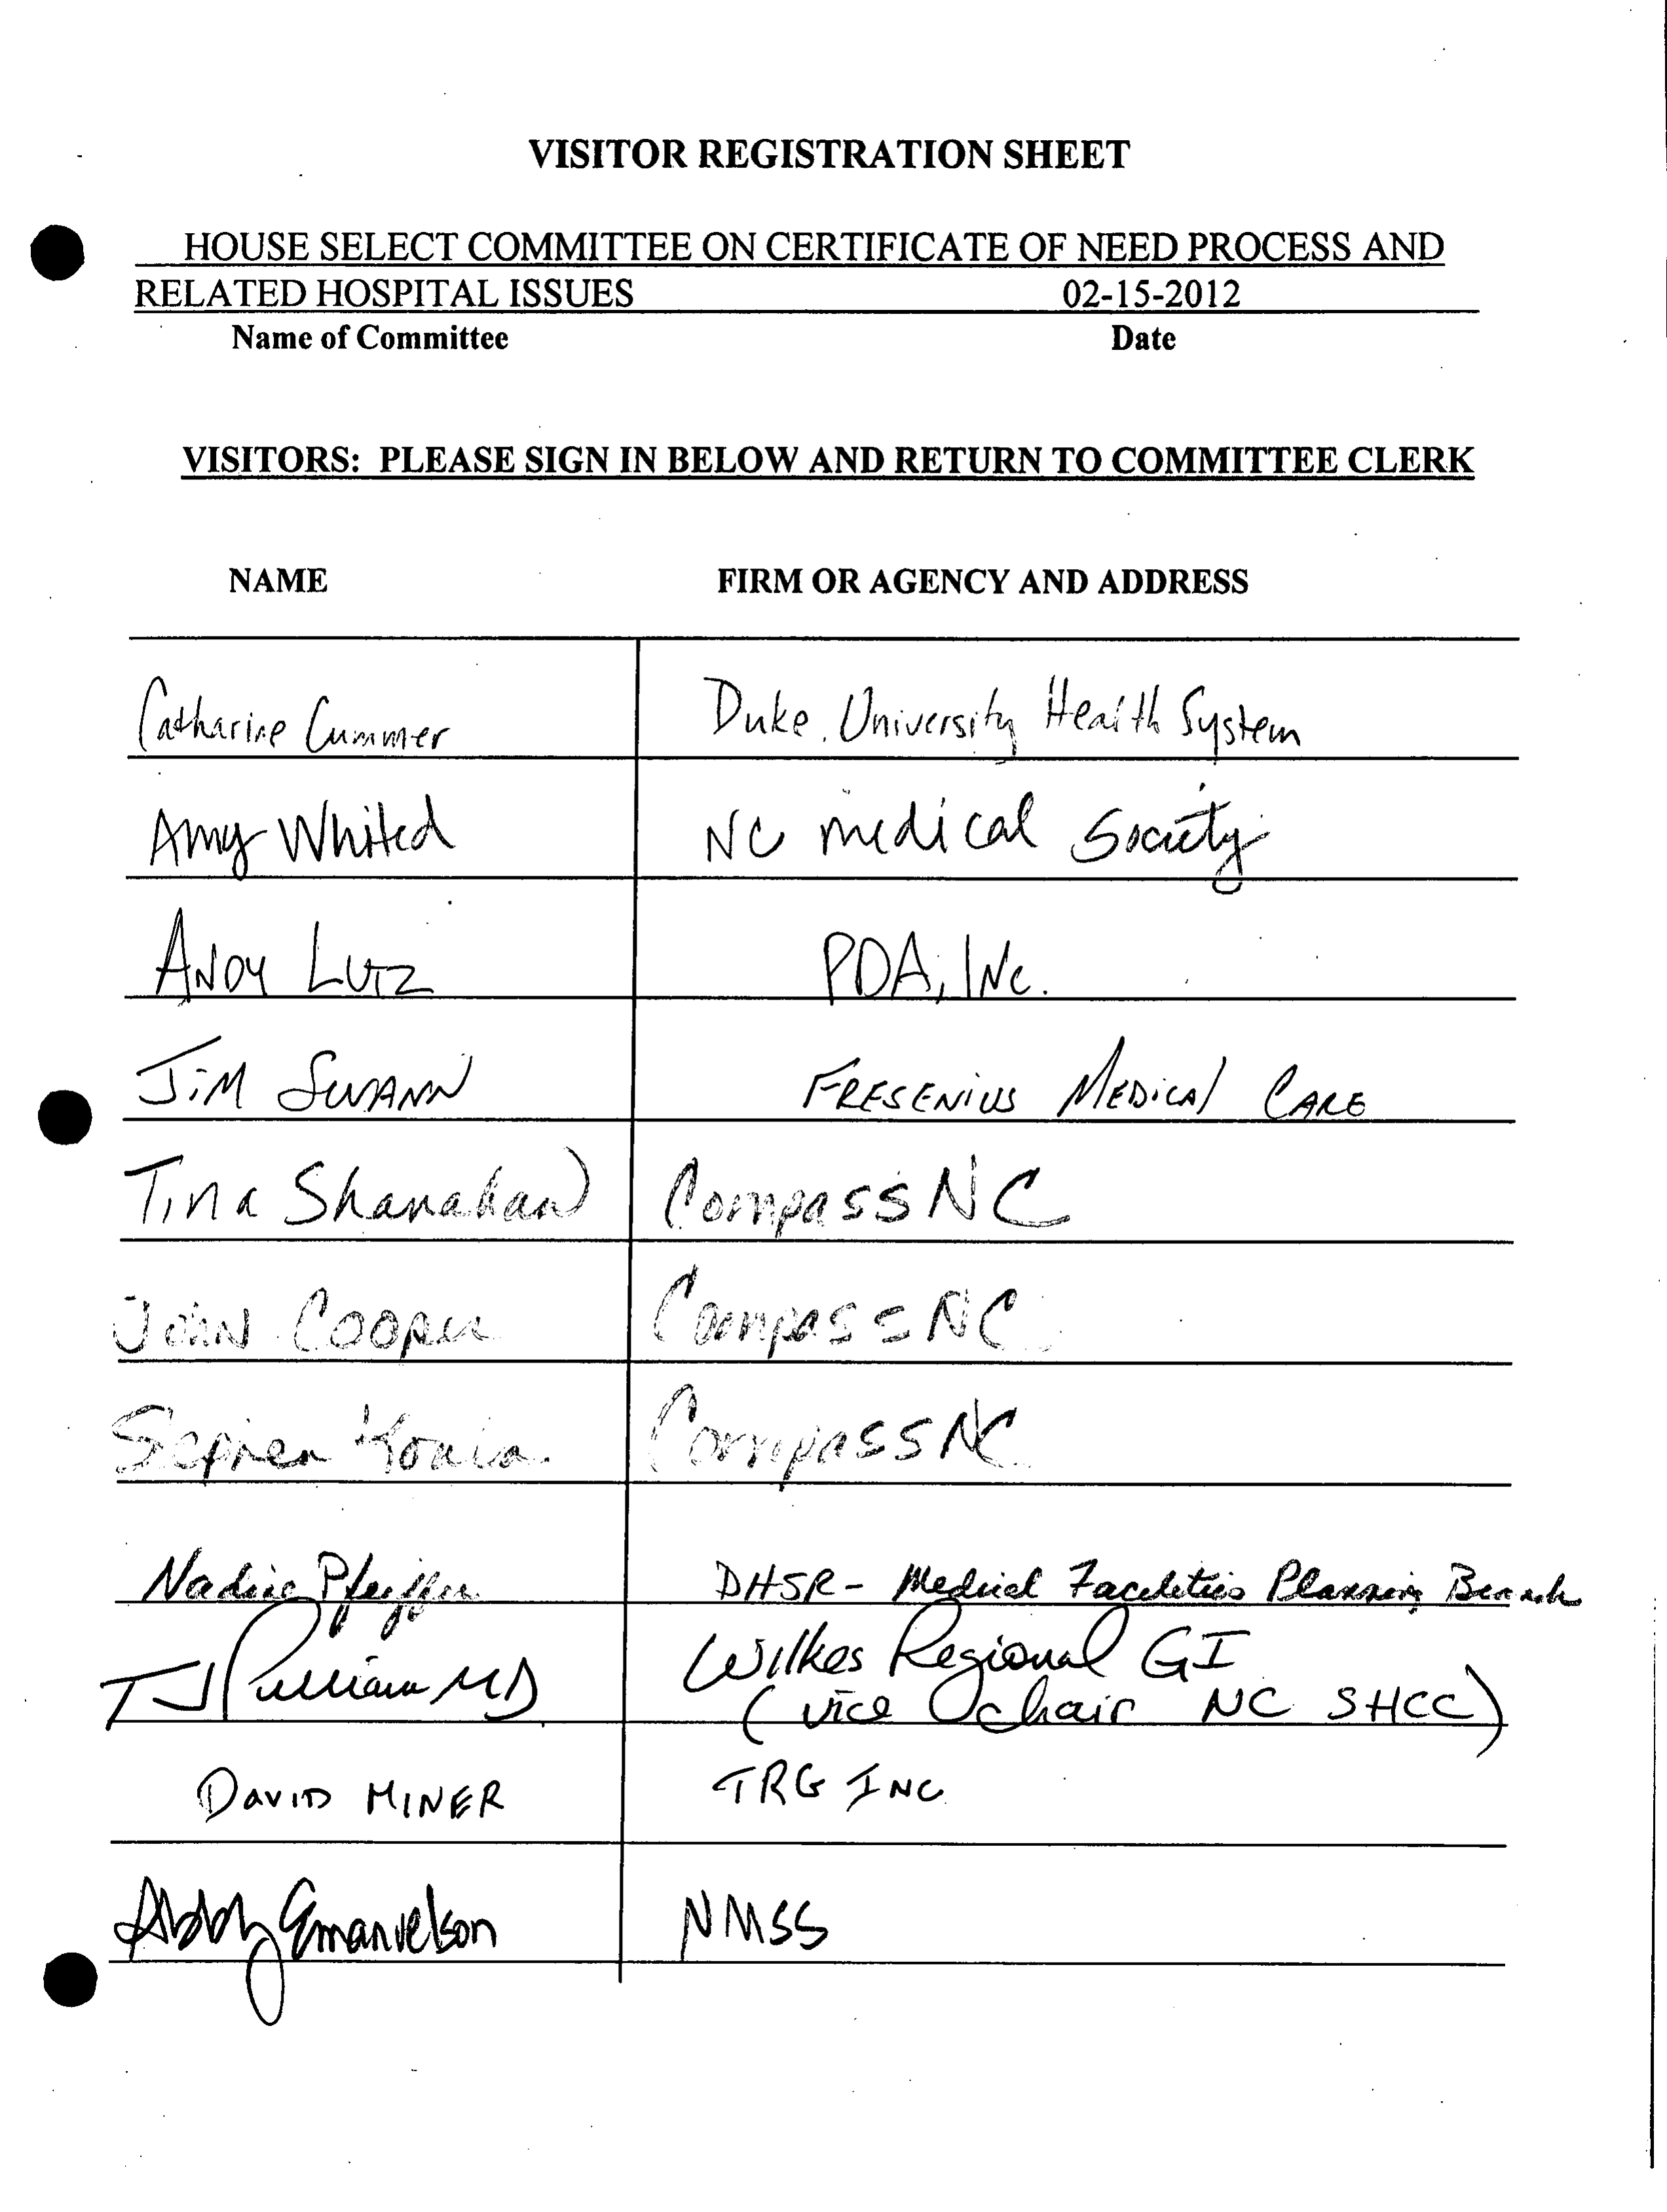 VISITOR REGISTRATION SHEET
HOUSE SELECT COMMITTEE ON CERTIFICATE OF NEED PROCESS AND
RELATED HOSPITAL ISSUES 02-15-2012
Name of Committee Date
VISITORS: PLEASE SIGN IN BELOW AND RETURN TO COMMITTEE CLERK
NAME FIRM OR AGENCY AND ADDRESS
Catharine Cummer Duke University Health System
Amy Whited NC Medical Society
ANDY LUTZ PDA, INC.
JIM SWANN FRESENIUS MEDICAL CARE
Tina Shanahan CompassNC
JOHN COOPER CompassNC
CompassNC
Nadine Pfeiffer DHSR - Medical Facilities Planning Branch
TJ Pulliam MD Wilkes Regional GI
(vice chair NC SHCC)
DAVID MINER TRG INC
Abby Emanuelson NMSS